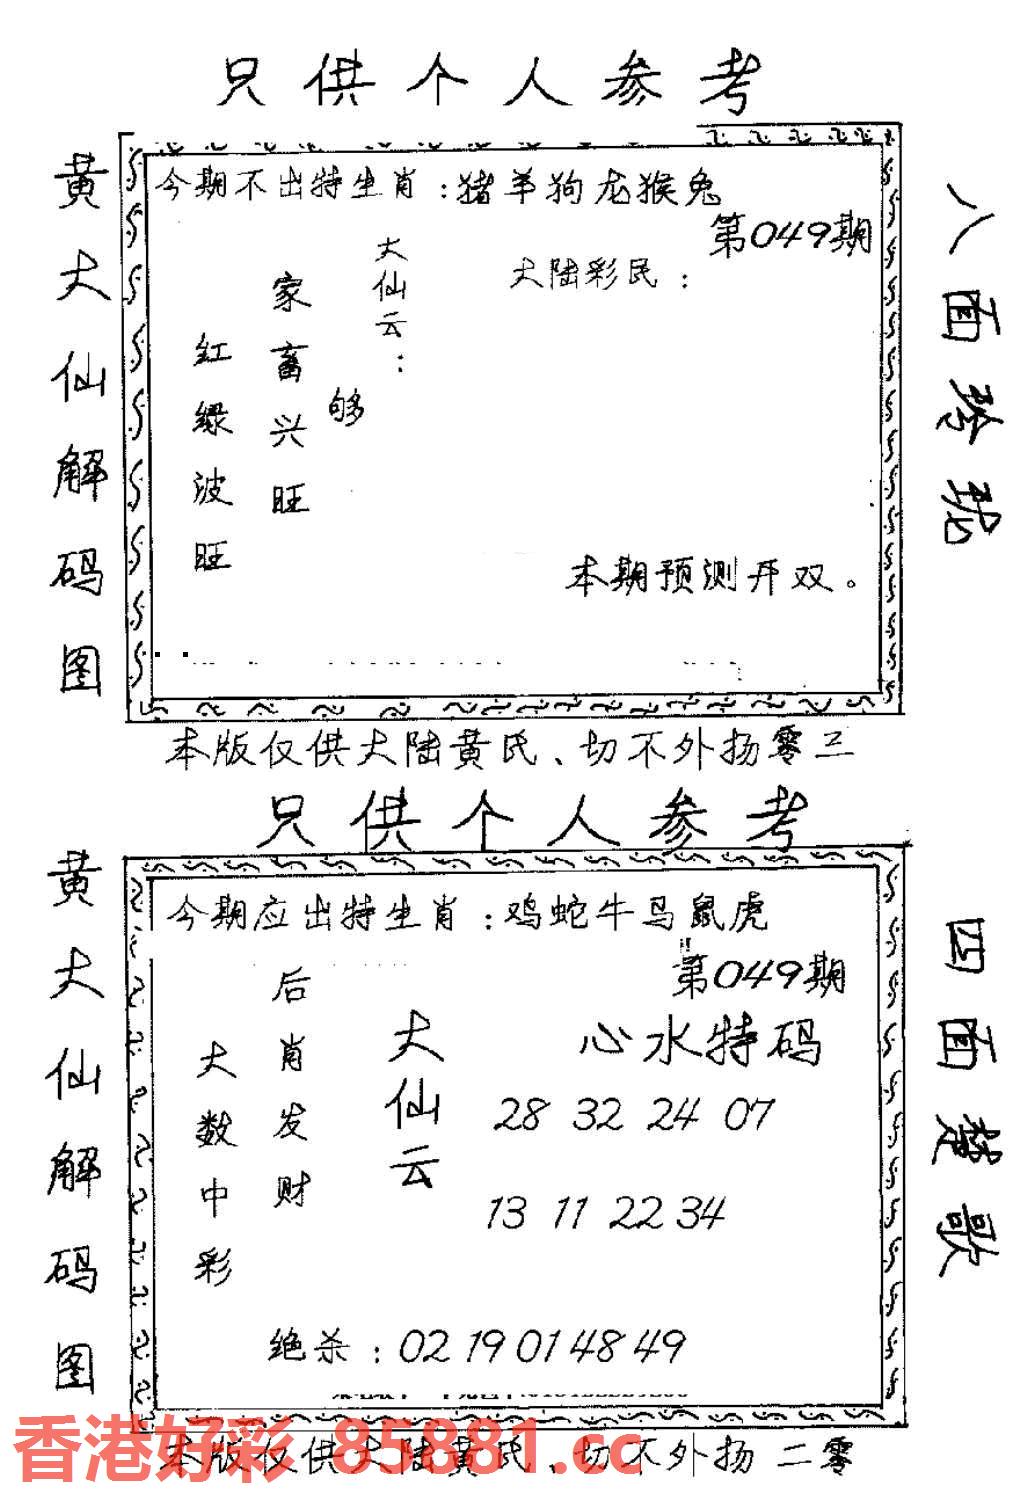 只供个人参考
黄大仙解码图
今期不出特生肖：猪羊狗龙猴兔
第049期
大陆彩民：
大仙云：
够
家畜兴旺
红绿波旺
本期预测开双。
八面玲珑
本版仅供大陆黄氏、切不外扬零三
只供个人参考
黄大仙解码图
今期应出特生肖：鸡蛇牛马鼠虎
第049期
心水特码
28 32 24 07
13 11 22 34
大仙云
后肖发财
大数中彩
绝杀：02 19 01 48 49
四面楚歌
本版仅供大陆黄氏、切不外扬二零
香港好彩 85881.cc